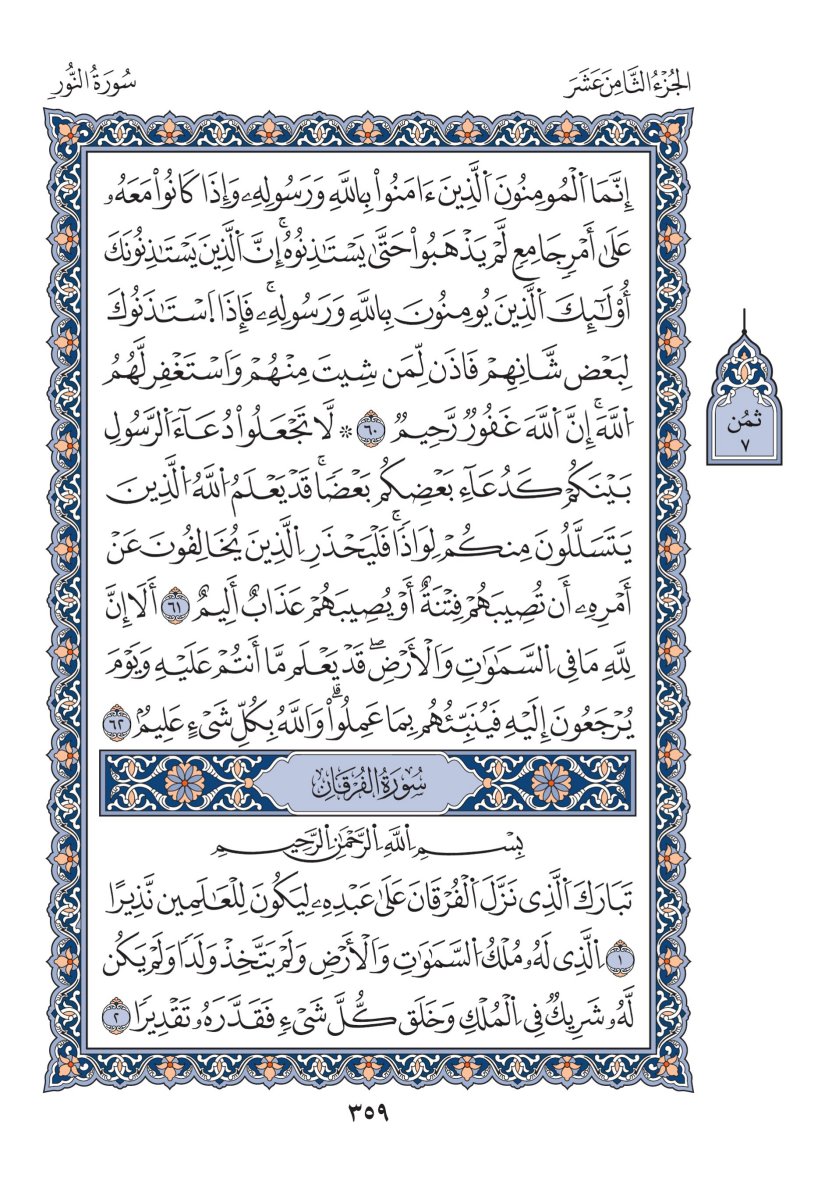 الجُزْءُ الثَّامِنَ عَشَرَ
سُورَةُ النُّورِ
إِنَّمَا اَ۬لْمُومِنُونَ اَ۬لذِينَ ءَامَنُواْ بِاللَّهِ وَرَسُولِهِۦ وَإِذَا كَانُواْ مَعَهُۥ
عَلَىٰ أَمْرٖ جَامِعٖ لَّمْ يَذْهَبُواْ حَتَّىٰ يَسْتَٰذِنُوهُۖ إِنَّ اَ۬لذِينَ يَسْتَٰذِنُونَكَ
أُوْلَٰٓئِكَ اَ۬لذِينَ يُومِنُونَ بِاللَّهِ وَرَسُولِهِۦۖ فَإِذَا اَ۪سْتَٰذَنُوكَ
لِبَعْض شَّانِهِمْ فَاذَن لِّمَن شِيتَ مِنْهُمْ وَاَسْتَغْفِر لَّهُمُ
اُ۬للَّهَۖ إِنَّ اَ۬للَّهَ غَفُورٞ رَّحِيمٞ ٦٠ * لَّا تَجْعَلُواْ دُعَآءَ اَ۬لرَّسُولِ
بَيْنَكُمْ كَدُعَآءِ بَعْضِكُم بَعْضٗاۖ قَدْ يَعْلَمُ اُ۬للَّهُ اُ۬لذِينَ
يَتَسَلَّلُونَ مِنكُمْ لِوَاذٗاۖ فَلْيَحْذَرِ اِ۬لذِينَ يُخَالِفُونَ عَنْ
أَمْرِهِۦ أَن تُصِيبَهُمْ فِتْنَةٌ أَوْ يُصِيبَهُمْ عَذَابٌ أَلِيمٌ ٦١ أَلَا إِنَّ
لِلَّهِ مَا فِي اِ۬لسَّمَٰوَٰتِ وَالْأَرْضِۖ قَدْ يَعْلَم مَّا أَنتُمْ عَلَيْهِ وَيَوْمَ
يُرْجَعُونَ إِلَيْهِ فَيُنَبِّئُهُم بِمَا عَمِلُواْۗ وَاللَّهُ بِكُلِّ شَيْءٍ عَلِيمٌ ٦٢
سُورَةُ الفُرْقَانِ
بِسْمِ اِ۬للَّهِ اِ۬لرَّحْمَٰنِ اِ۬لرَّحِيمِ
تَبَارَكَ اَ۬لذِي نَزَّلَ اَ۬لْفُرْقَانَ عَلَىٰ عَبْدِهِۦ لِيَكُونَ لِلْعَٰلَمِين نَّذِيرًا
١ اِ۬لذِي لَهُۥ مُلْكُ اُ۬لسَّمَٰوَٰتِ وَالْأَرْضِ وَلَمْ يَتَّخِذْ وَلَدٗا وَلَمْ يَكُن
لَّهُۥ شَرِيكٞ فِي اِ۬لْمُلْكِ وَخَلَق كُّلَّ شَيْءٖ فَقَدَّرَهُۥ تَقْدِيرٗا ٢
ثمُن
٧
٣٥٩